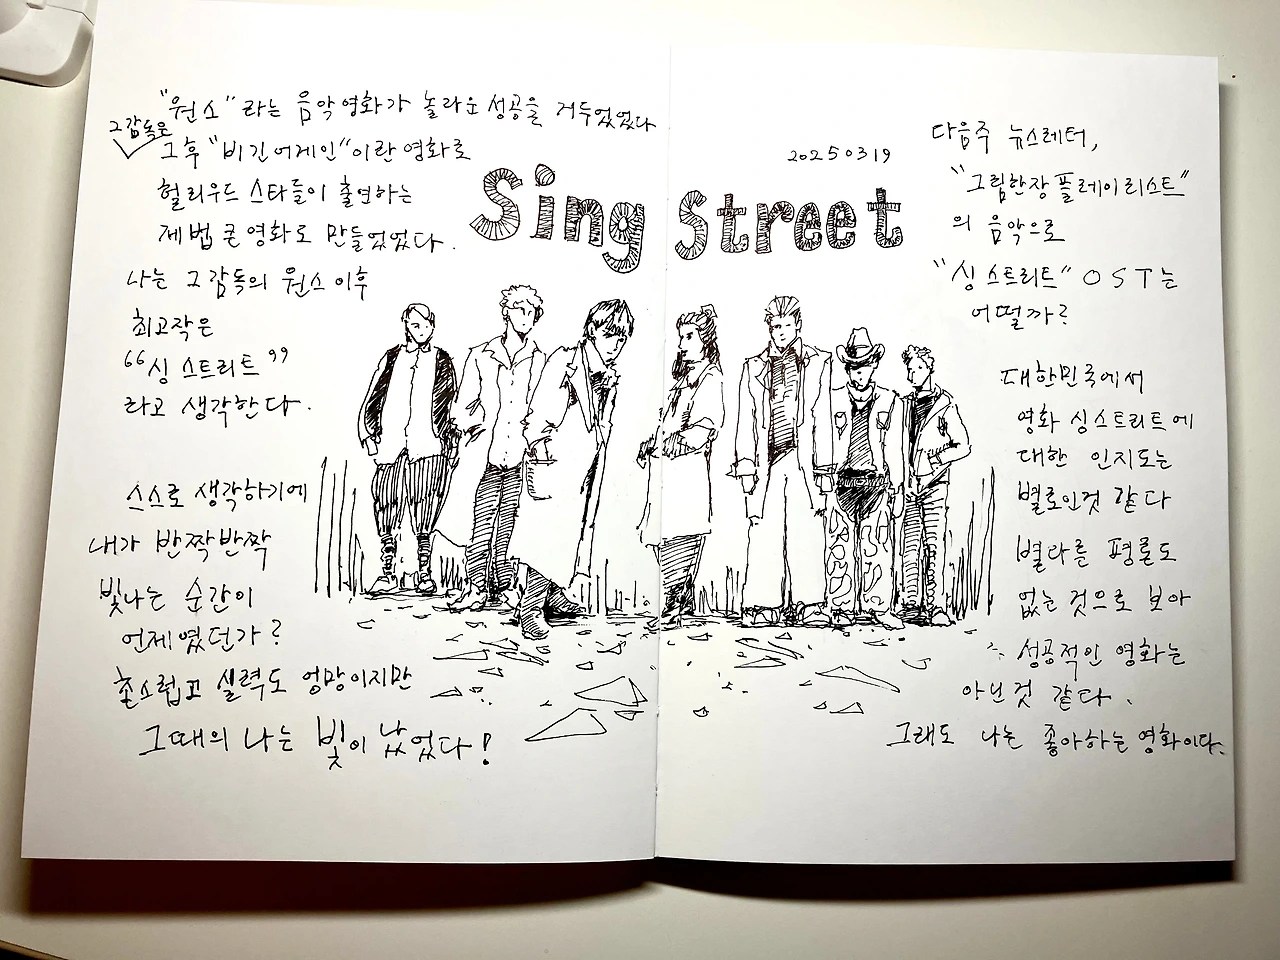 "원스"라는 음악영화가 놀라운 성공을 거두었었다
그감독은
그후 "비긴어게인"이란 영화로
헐리우드 스타들이 출연하는
제법 큰 영화로 만들었었다.
나는 그감독의 원스 이후
최고작은
"싱 스트리트"
라고 생각한다.
스스로 생각하기에
내가 반짝반짝
빛나는 순간이
언제였던가?
촌스럽고 실력도 엉망이지만
그때의 나는 빛이 났었다!
Sing Street
20250319
다음주 뉴스레터,
"그림한장 플레이리스트"
의 음악으로
"싱 스트리트" OST는
어떨까?
대한민국에서
영화 싱스트리트에
대한 인지도는
별로인것 같다
별다른 평론도
없는 것으로 보아
성공적인 영화는
아닌것 같다.
그래도 나는 좋아하는 영화이다.